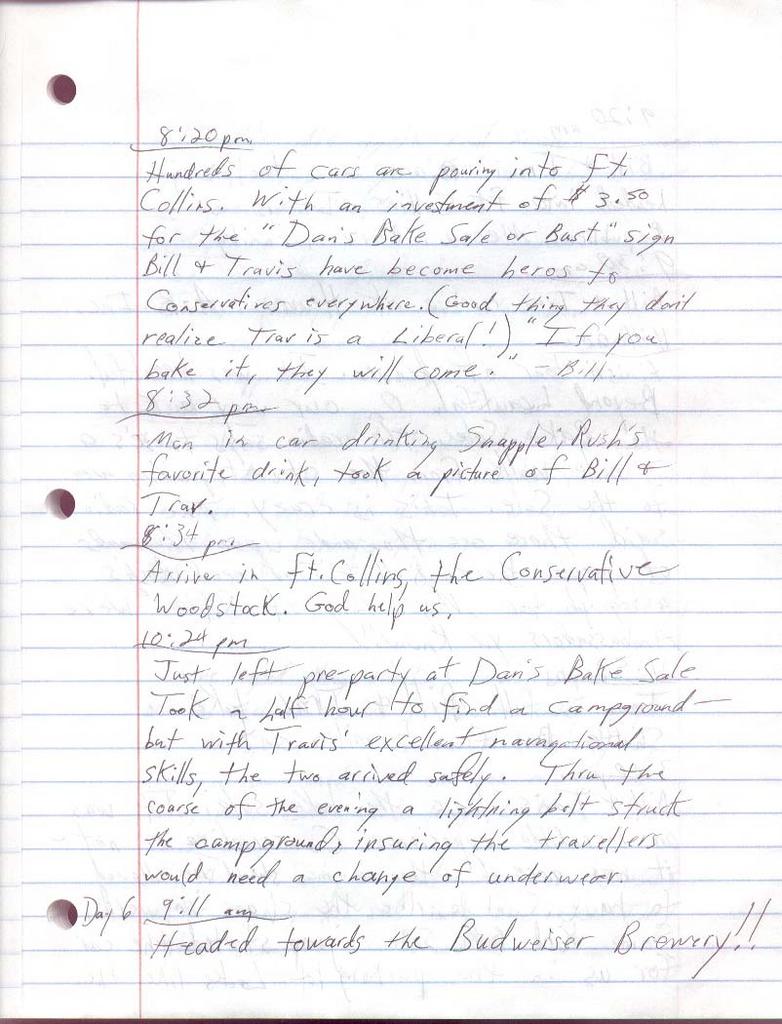 8:20 pm
Hundreds of cars are pouring into Ft.
Collins. With an investment of $3.50
for the "Dan's Bake Sale or Bust" sign
Bill & Travis have become heros to
Conservatives everywhere. (Good thing they don't
realize Trav is a Liberal!) "If you
bake it, they will come." - Bill
8:32 pm
Man in car drinking Snapple, Rush's
favorite drink, took a picture of Bill &
Trav.
8:34 pm
Arrive in Ft. Collins, the Conservative
Woodstock. God help us.
10:24 pm
Just left pre-party at Dan's Bake Sale
Took a half hour to find a campground -
but with Travis' excellent navagational
skills, the two arrived safely. Thru the
coarse of the evening a lightning bolt struck
the campground, insuring the travellers
would need a change of underwear.
Day 6 9:11 am
Headed towards the Budweiser Brewery!!